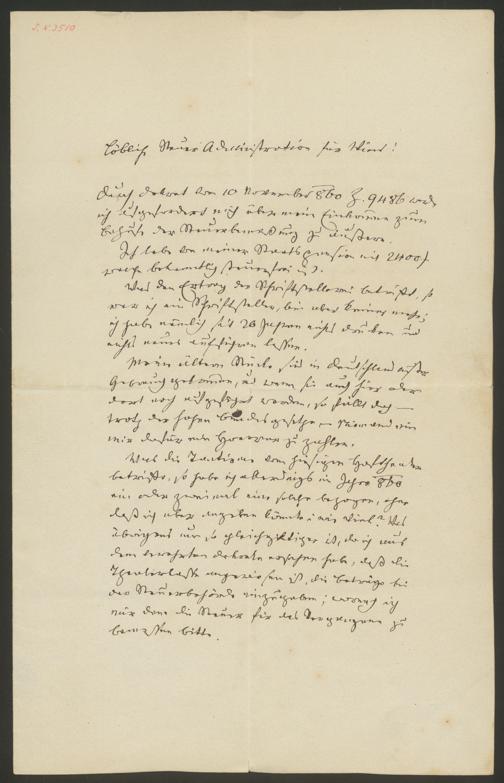 J. N. 3510
Löbliche Steuer Administration für Wien!
Durch Dekret vom 10 November 860 Z. 9486 werde
ich aufgefordert mich über mein Einkommen zum
Behufe der Steuerbemessung zu äußern.
Ich lebe von meiner Staatspension mit 2400 f
welche bekanntlich steuerfrei ist.
Was den Ertrag der Schriftstellerei betrifft, so
war ich ein Schriftsteller, bin aber keiner mehr;
ich habe nämlich seit 20 Jahren nichts drucken und
nichts neues aufführen lassen.
Meine ältern Stücke sind in Deutschland außer
Gebrauch gekommen, und wenn sie auch hier oder
dort noch aufgeführt werden, so fällt doch —
trotz der hohen Bundesgesetze — Niemand ein
mir dafür ein Honorar zu zahlen.
Was die Tantiemen vom hiesigen Hoftheater
betrifft, so habe ich allerdings im Jahre 860
ein oder zweimal eine solche bezogen, ohne
daß ich aber angeben könnte: wie viel? Was
übrigens um so gleichgiltiger ist, da ich aus
dem verehrten Dekrete ersehen habe, daß die
Theaterkasse angewiesen ist, die Beträge bei
der Steuerbehörde anzugeben; wornach ich
mir denn die Steuer für das Vergangene zu
bemessen bitte.